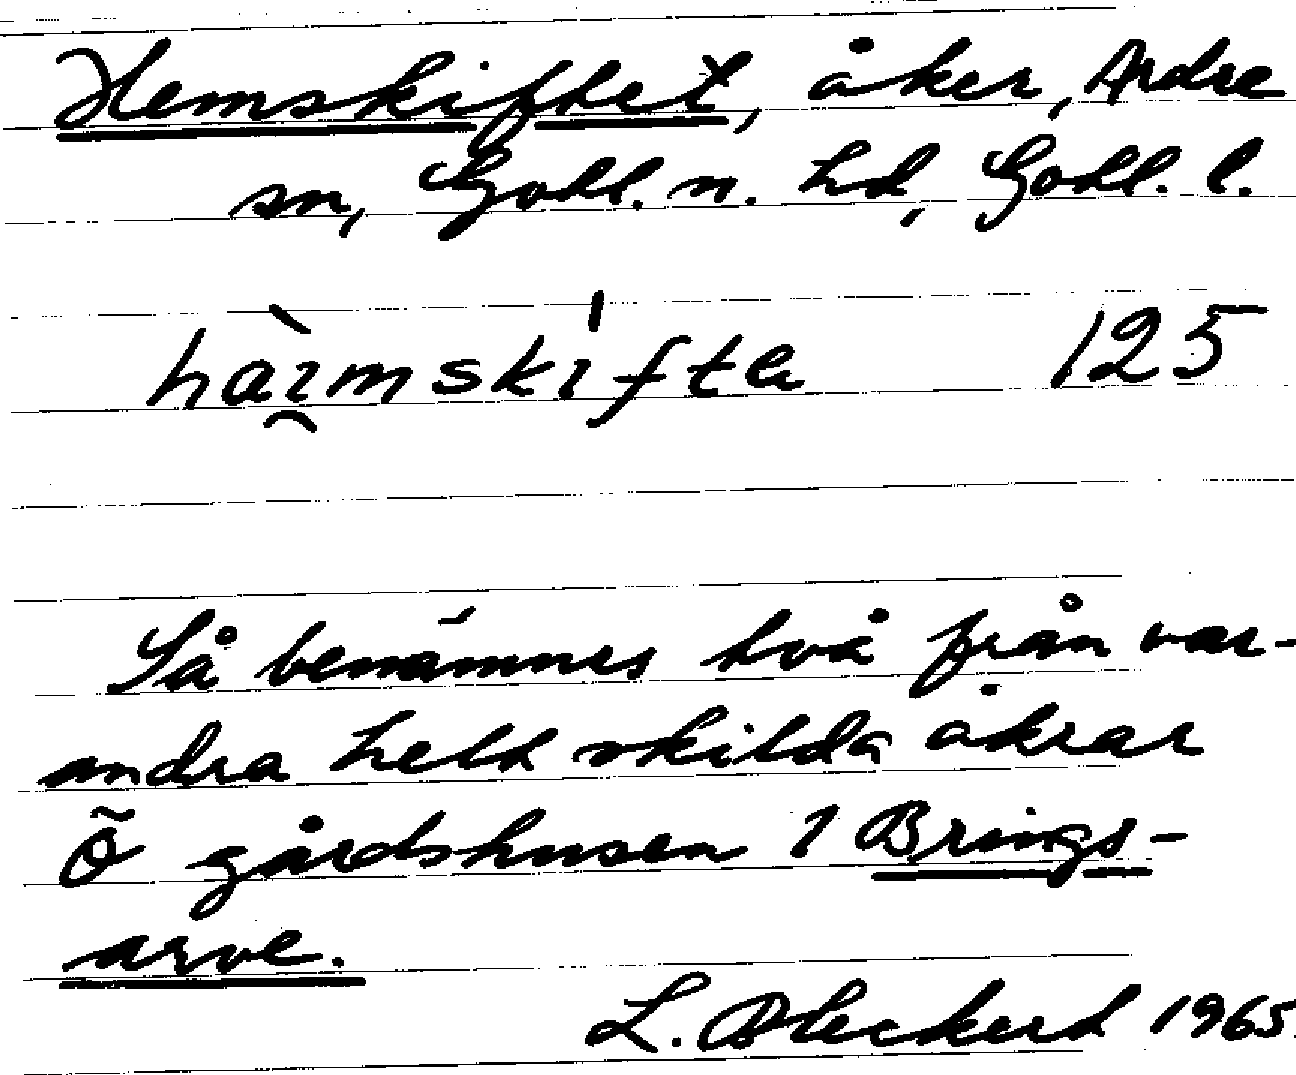 Hemskiftet, åker, Ardre
sn, Gotl. n. hd, Gotl. l.
hài̯mskìfta 125
Så benämnes två från var-
andra helt skilda åkrar
Ö gårdshusen 1 Brings-
arve.
L. Bleckert 1965.